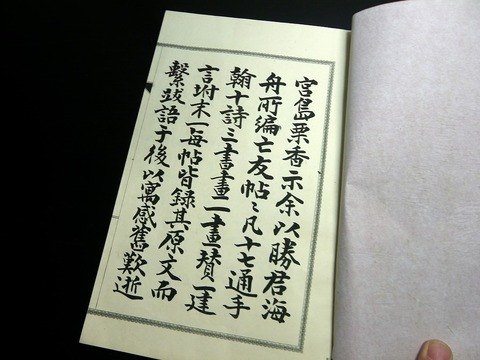 宮島栗香示余以勝君海
舟所編亡友帖〻凡十七通手
翰十詩三書畫二畫賛一建
言坿末一每帖皆録其原文而
繫跋語于後以寓感舊歎逝